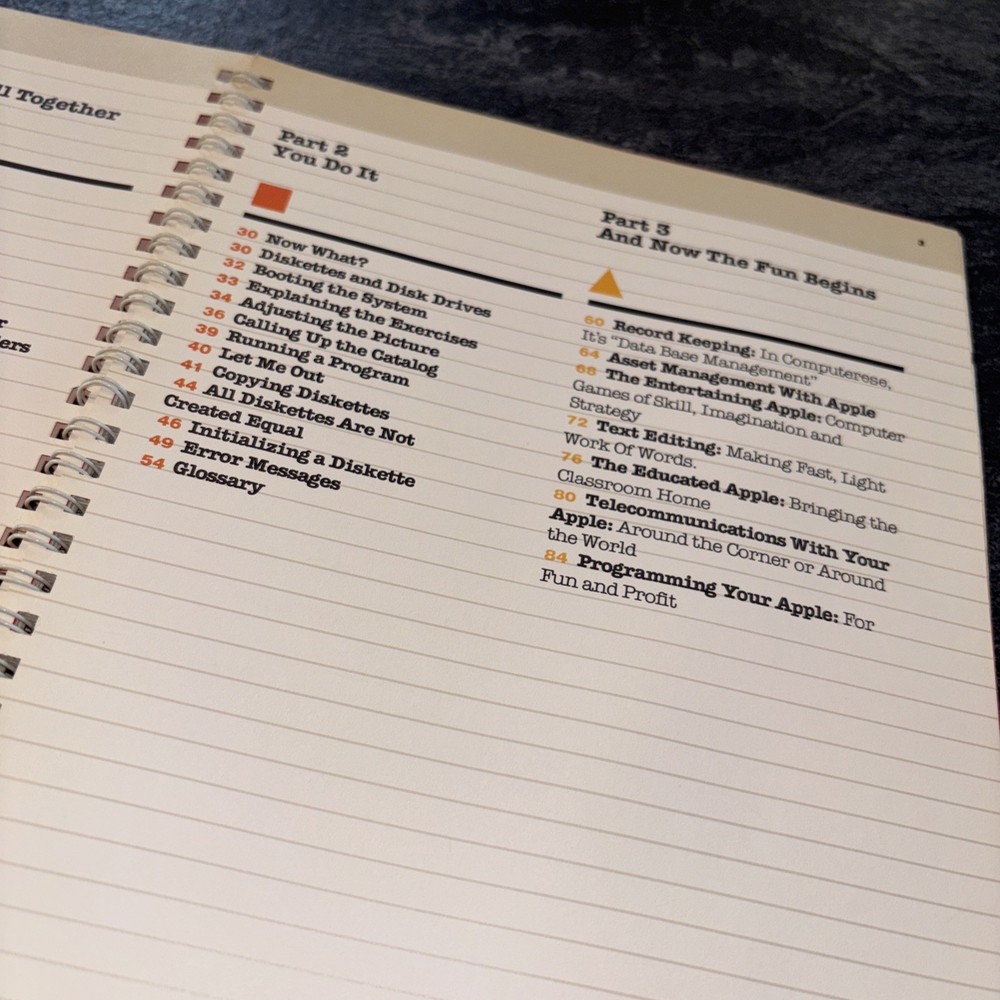 ll Together
ers
Part 2
You Do It
30 Now What?
30 Diskettes and Disk Drives
32 Booting the System
33 Explaining the Exercises
34 Adjusting the Picture
36 Calling Up the Catalog
39 Running a Program
40 Let Me Out
41 Copying Diskettes
44 All Diskettes Are Not
Created Equal
46 Initializing a Diskette
49 Error Messages
54 Glossary
Part 3
And Now The Fun Begins
60 Record Keeping: In Computerese,
It's "Data Base Management"
64 Asset Management With Apple
68 The Entertaining Apple: Computer
Games of Skill, Imagination and
Strategy
72 Text Editing: Making Fast, Light
Work Of Words.
76 The Educated Apple: Bringing the
Classroom Home
80 Telecommunications With Your
Apple: Around the Corner or Around
the World
84 Programming Your Apple: For
Fun and Profit
3